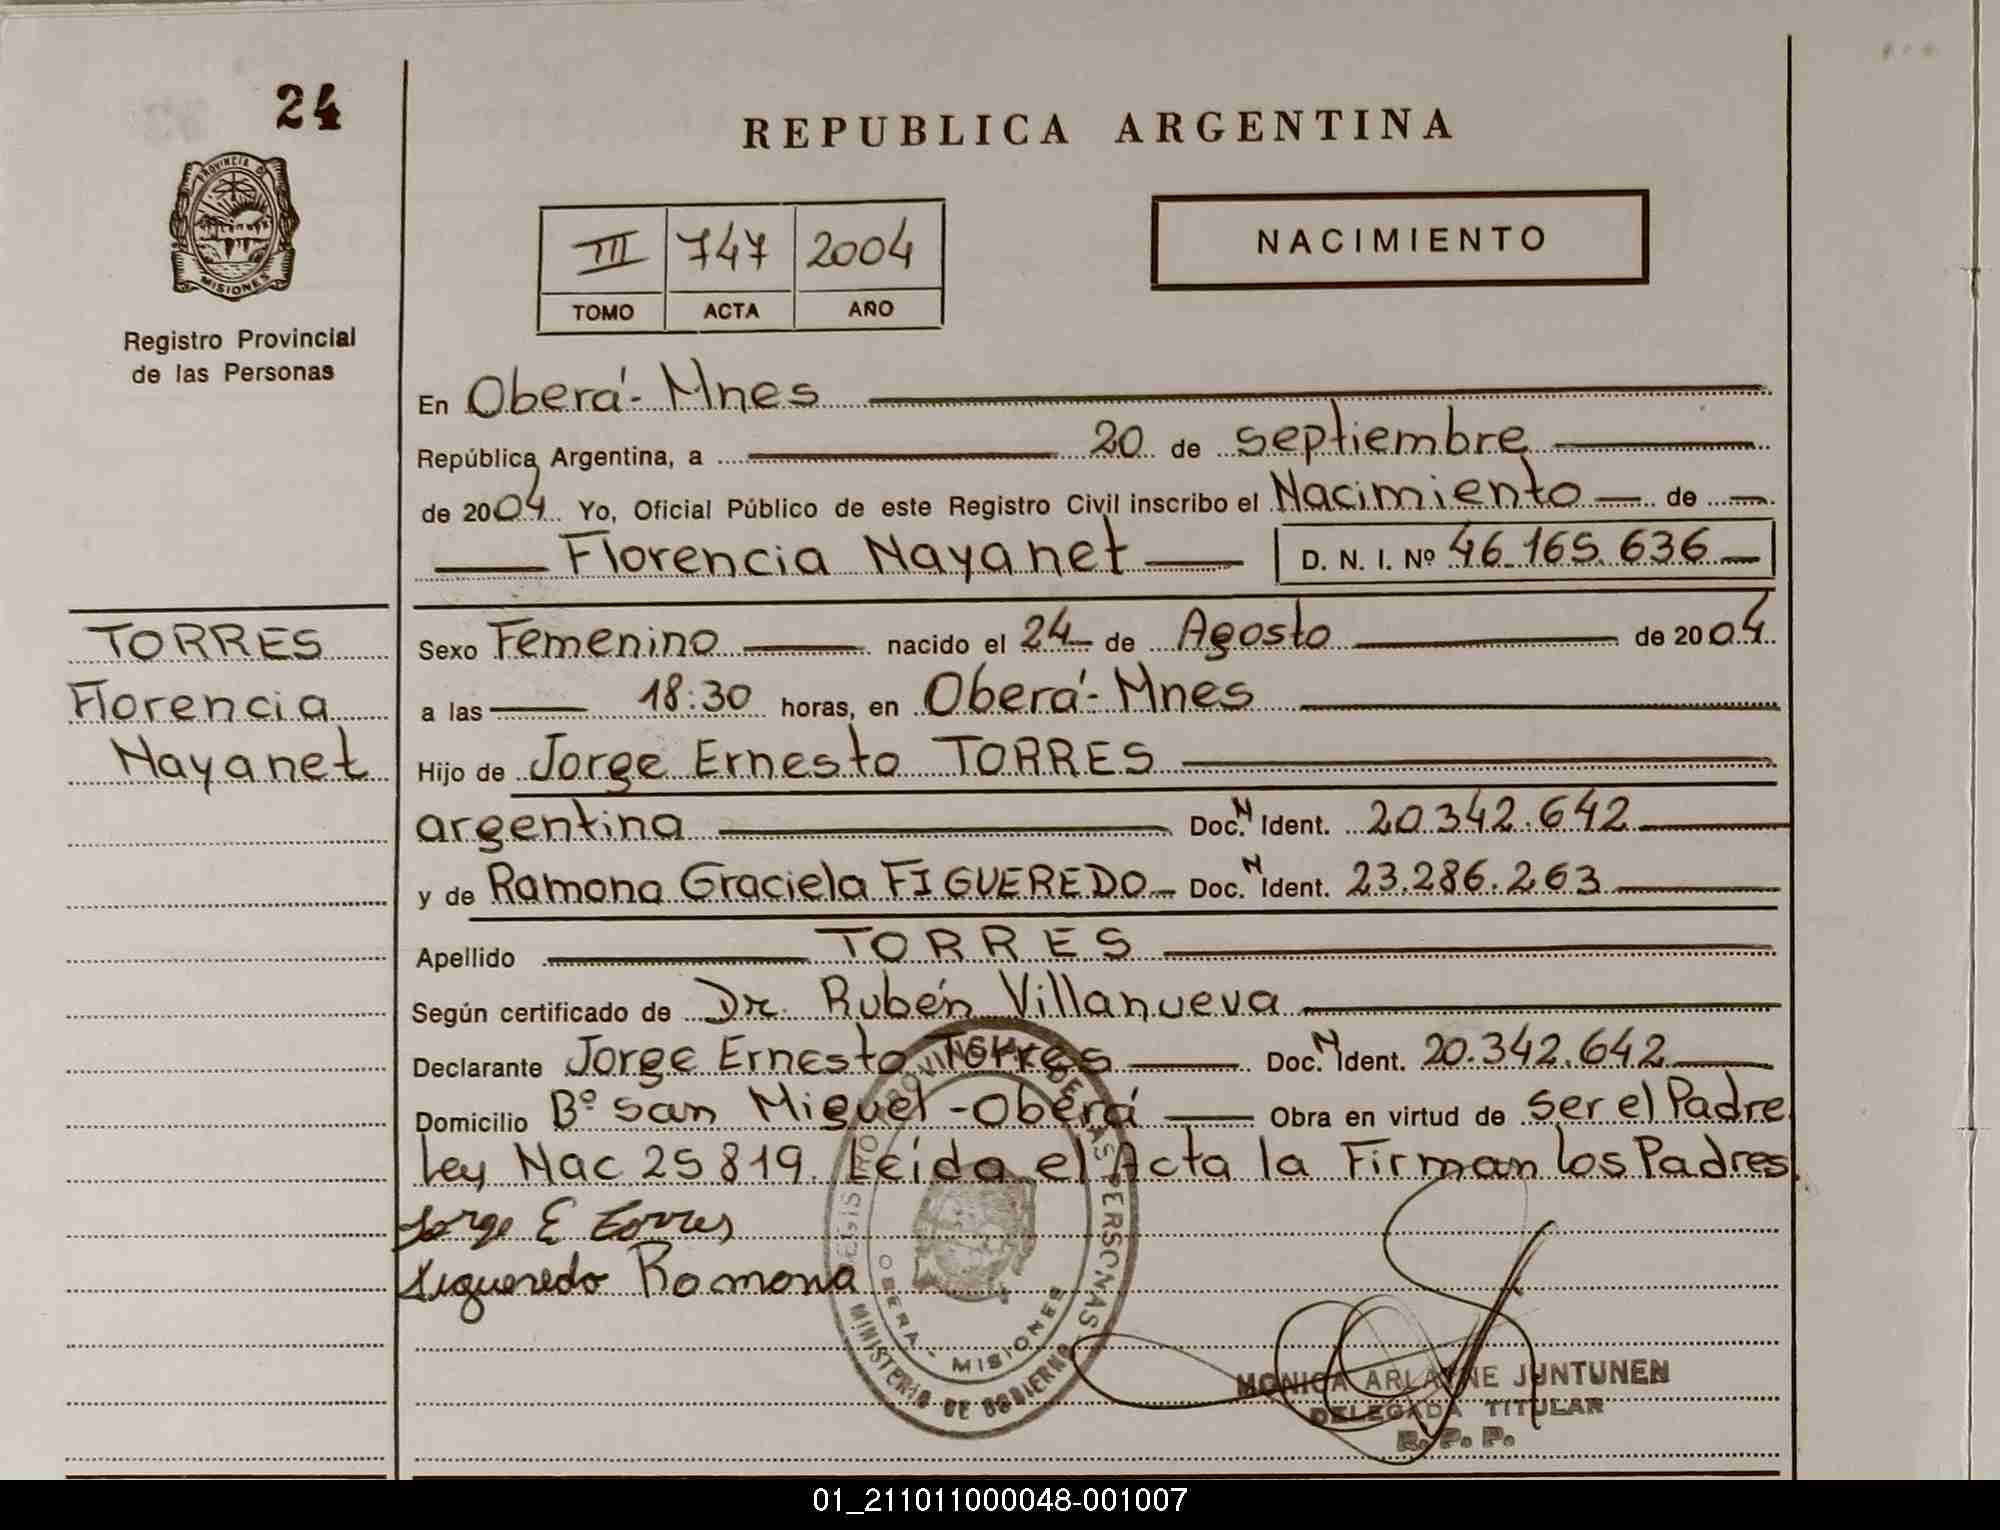 24
PROVINCIA DE
MISIONES
Registro Provincial
de las Personas
REPUBLICA ARGENTINA
III 747 2004
TOMO ACTA AÑO
NACIMIENTO
En Oberá - Mnes
República Argentina, a 20 de septiembre
de 2004 Yo, Oficial Público de este Registro Civil inscribo el Nacimiento de
Florencia Nayanet D. N. I. Nº 46.165.636
TORRES
Florencia
Nayanet
Sexo Femenino nacido el 24 de Agosto de 2004
a las 18:30 horas, en Oberá - Mnes
Hijo de Jorge Ernesto TORRES
argentina Doc. N Ident. 20.342.642
y de Ramona Graciela FIGUEREDO Doc. N Ident. 23.286.263
Apellido TORRES
Según certificado de Dr. Rubén Villanueva
Declarante Jorge Ernesto Torres Doc. N Ident. 20.342.642
Domicilio Bº San Miguel - Oberá Obra en virtud de ser el Padre
Ley Nac 25819. Leída el Acta la Firman los Padres
Jorge E Torres
Figueredo Ramona
REGISTRO PROVINCIAL DE LAS PERSONAS
OBERA - MISIONES
MINISTERIO DE GOBIERNO
MONICA ARLAYNE JUNTUNEN
DELEGADA TITULAR
R. P. P.
01_211011000048-001007